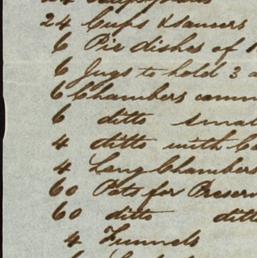 24
24 Cups & Saucers
6 Pie dishes of
6 Jugs to hold 3
6 Chambers comm
6 ditto smal
4 ditto with C
4 Lang Chambers
60 Pots for Preser
60 ditto ditt
4 Funnels
6